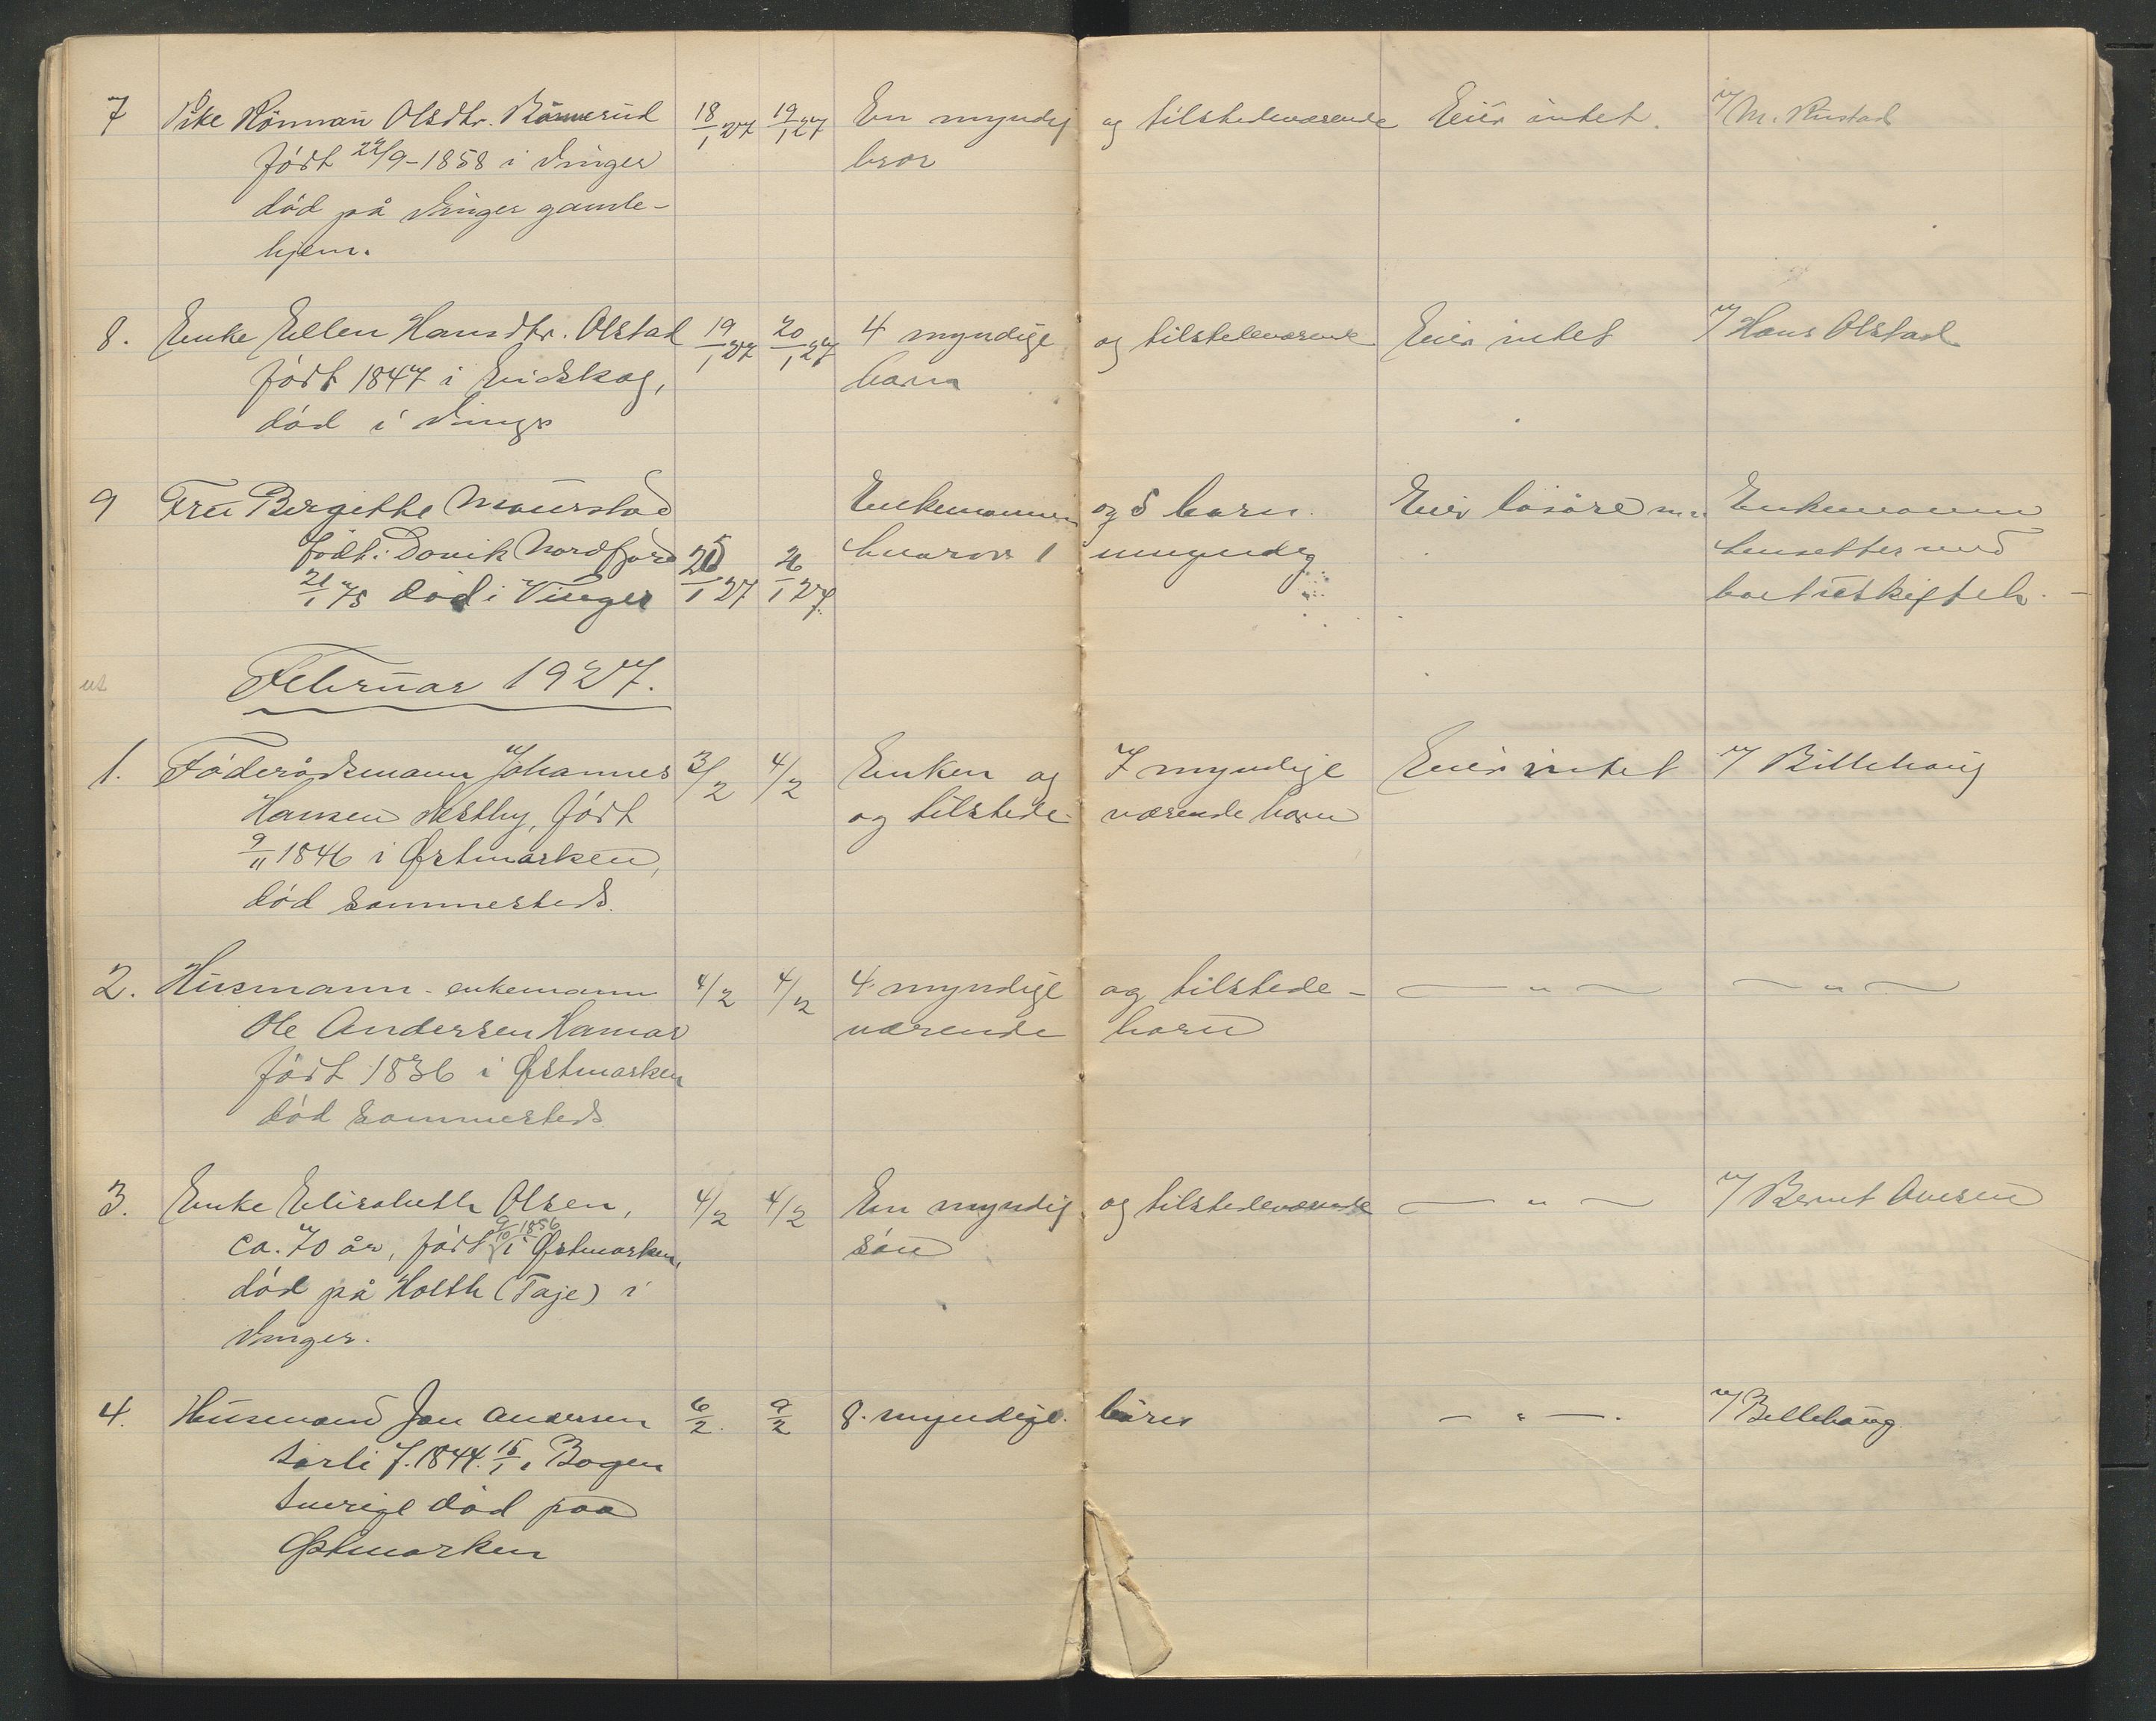 7 Pike Rönnau Olsdtr. Bömerud 18/1 27 19/1 27 En myndig og tilstedeværende Eier intet. v/ M. Rustad
født 29/9-1858 i Vinger bror
död på Vinger gamle-
hjem.
8. Enke Ellen Hansdtr. Olstad 19/1 27 20/1 27 4 myndige og tilstedeværende Eier intet v/ Hans Olstad
født 1847 i Eidskog, barn
död i Vinger
9 Fru Bergithe Maurstad Enkemannen og 5 barn. Eier lösöre m.m. Enkemannen
født: Davik Nordfjord 25/1 27 26/1 27 hvorav 1 umyndig hensitter med
21/1 75 död i Vinger boet uskiftet.
Februar 1927.
1. Föderådsmann Johannes 3/2 4/2 Enken og 7 myndige Eier intet v/ Billehaug
Hansen Vestby, født og tilstede- værende barn
9/11 1846 i Østmarken,
död sammesteds.
2. Husmann - enkemann 4/2 4/2 4 myndige og tilstede- — " — — " —
Ole Andersen Hamar værende barn
født 1836 i Østmarken
död sammesteds.
3. Enke Elisabeth Olsen, 4/2 4/2 En myndig og tilstedeværende — " — v/ Bernt Ovesen
ca. 70 år, født 9/10 1856 i Østmarken, sön
död på Holth (Taje) i
Vinger.
4. Husmand Jan Andersen 6/2. 9/2 8. myndige. barn — " —. v/ Billehaug.
Sorli f. 1844. 15/1 i Bogen
Sverige död paa
Østmarken